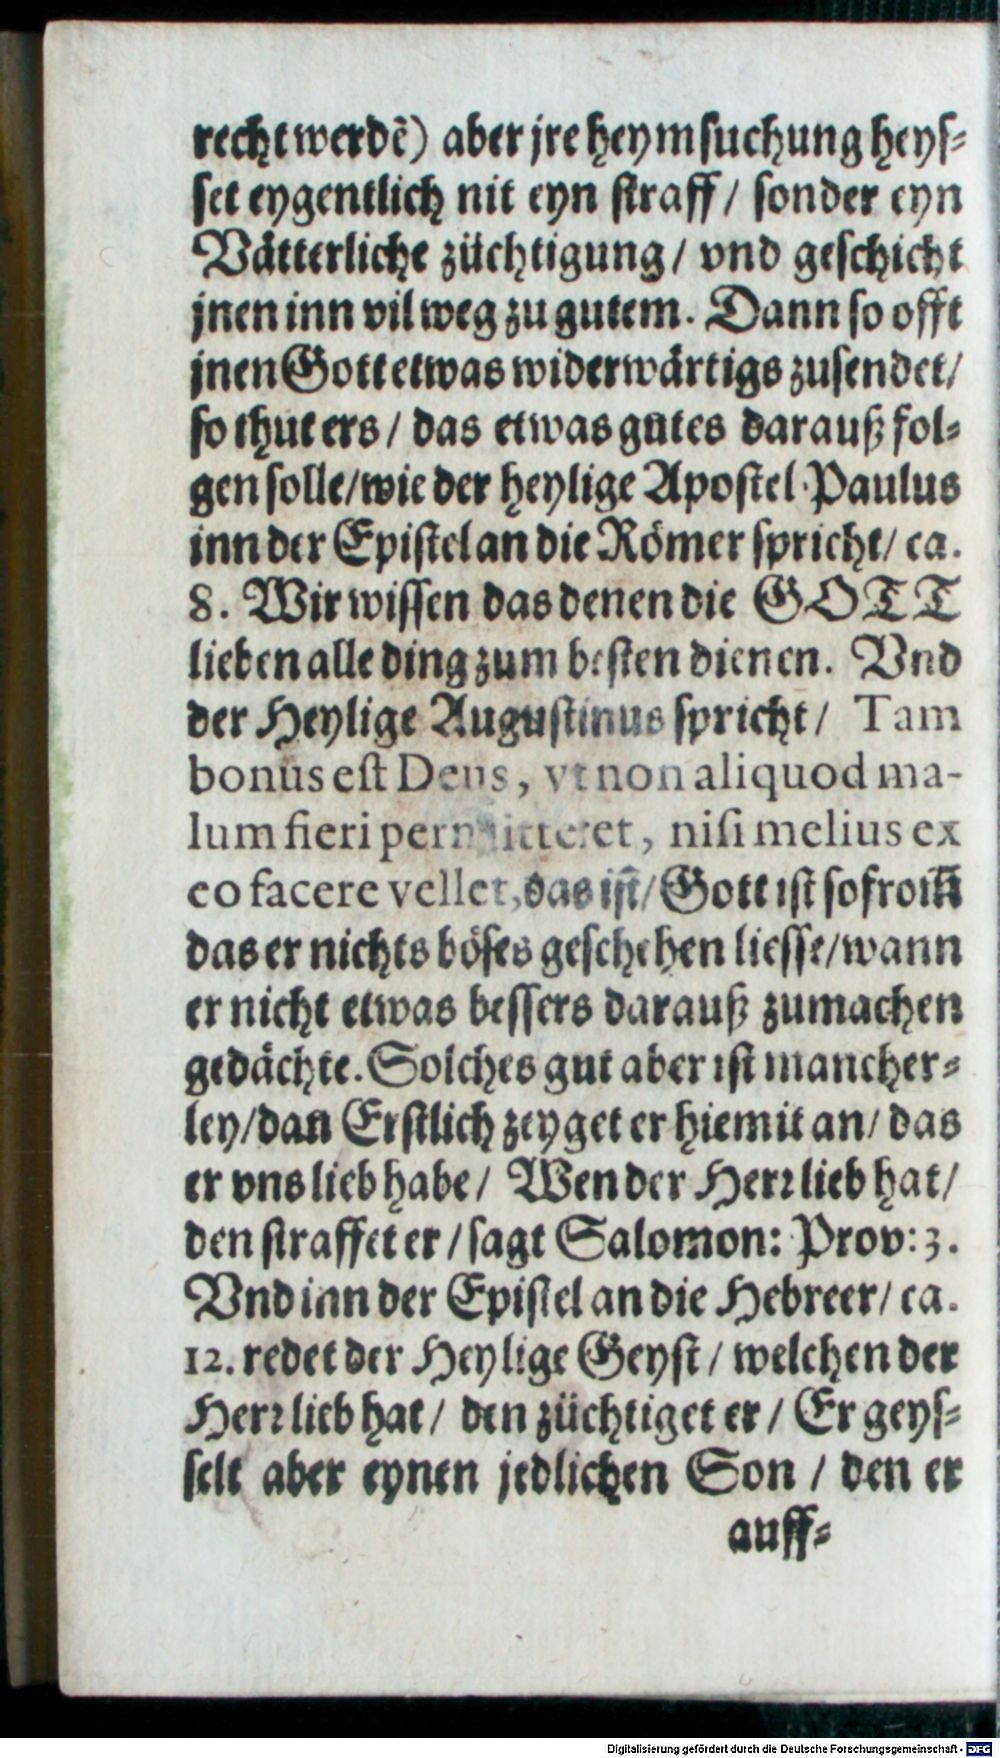 recht werdē) aber jre heymsuchung heys⸗
set eygentlich nit eyn straff / sonder eyn
Vätterliche züchtigung / vnd geschicht
jnen inn vil weg zu gutem. Dann so offt
jnen Gott etwas widerwärtigs zusendet /
so thut ers / das etwas gutes darauß fol⸗
gen solle / wie der heylige Apostel Paulus
inn der Epistel an die Römer spricht / ca.
8. Wir wissen das denen die GOTT
lieben alle ding zum besten dienen. Vnd
der Heylige Augustinus spricht / Tam
bonus est Deus, vt non aliquod ma-
lum fieri permitteret, nisi melius ex
eo facere vellet, das ist / Gott ist so from̃
das er nichts böses geschehen liesse / wann
er nicht etwas bessers darauß zumachen
gedächte. Solches gut aber ist mancher⸗
ley / dan Erstlich zeyget er hiemit an / das
er vns lieb habe / Wen der Herr lieb hat /
den straffet er / sagt Salomon: Prov: 3.
Vnd inn der Epistel an die Hebreer / ca.
12. redet der Heylige Geyst / welchen der
Herr lieb hat / den züchtiget er / Er geys⸗
selt aber eynen jedlichen Son / den er
auff⸗
Digitalisierung gefördert durch die Deutsche Forschungsgemeinschaft - DFG